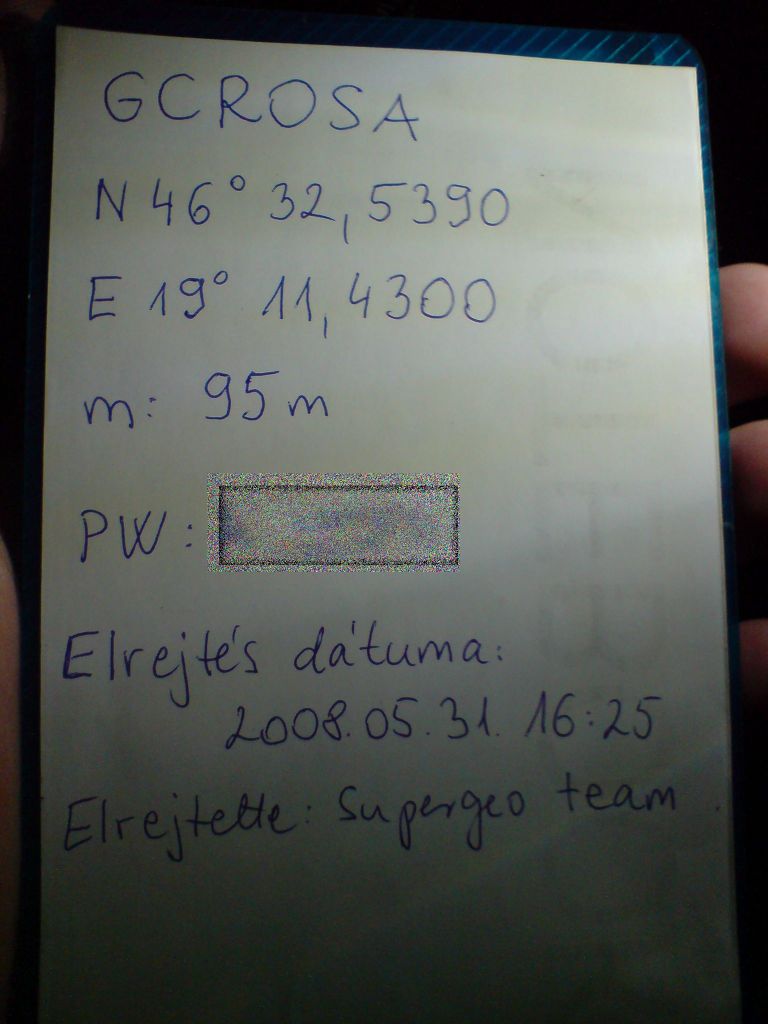 GCROSA
N 46° 32,5390
E 19° 11,4300
m: 95 m
PW:
Elrejtés dátuma:
2008.05.31. 16:25
Elrejtette: Supergeo team